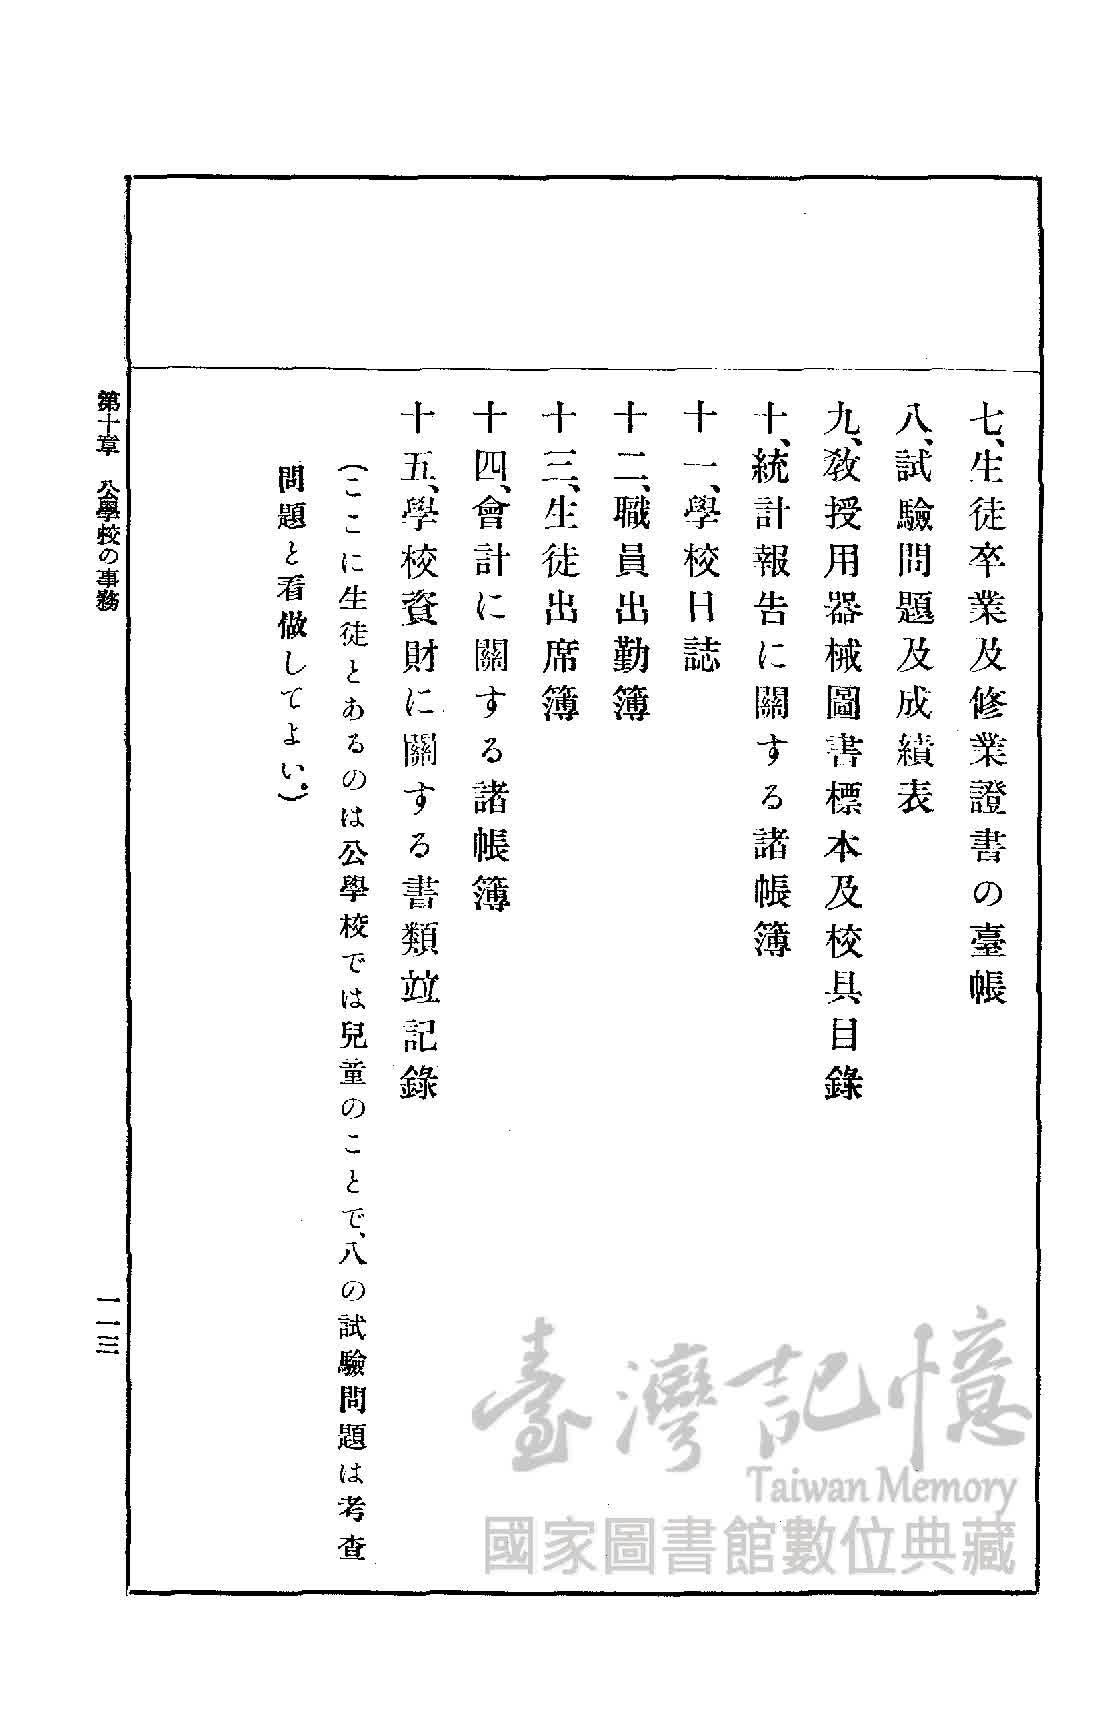 七、生徒卒業及修業證書の臺帳
八、試驗問題及成績表
九、敎授用器械圖書標本及校具目錄
十、統計報告に關する諸帳簿
十一、學校日誌
十二、職員出勤簿
十三、生徒出席簿
十四、會計に關する諸帳簿
十五、學校資財に關する書類竝記錄
(ここに生徒とあるのは公學校では兒童のことで、八の試驗問題は考查
問題と看做してよい。)
第十章 公學校の事務
一一三
臺灣記憶
Taiwan Memory
國家圖書館數位典藏